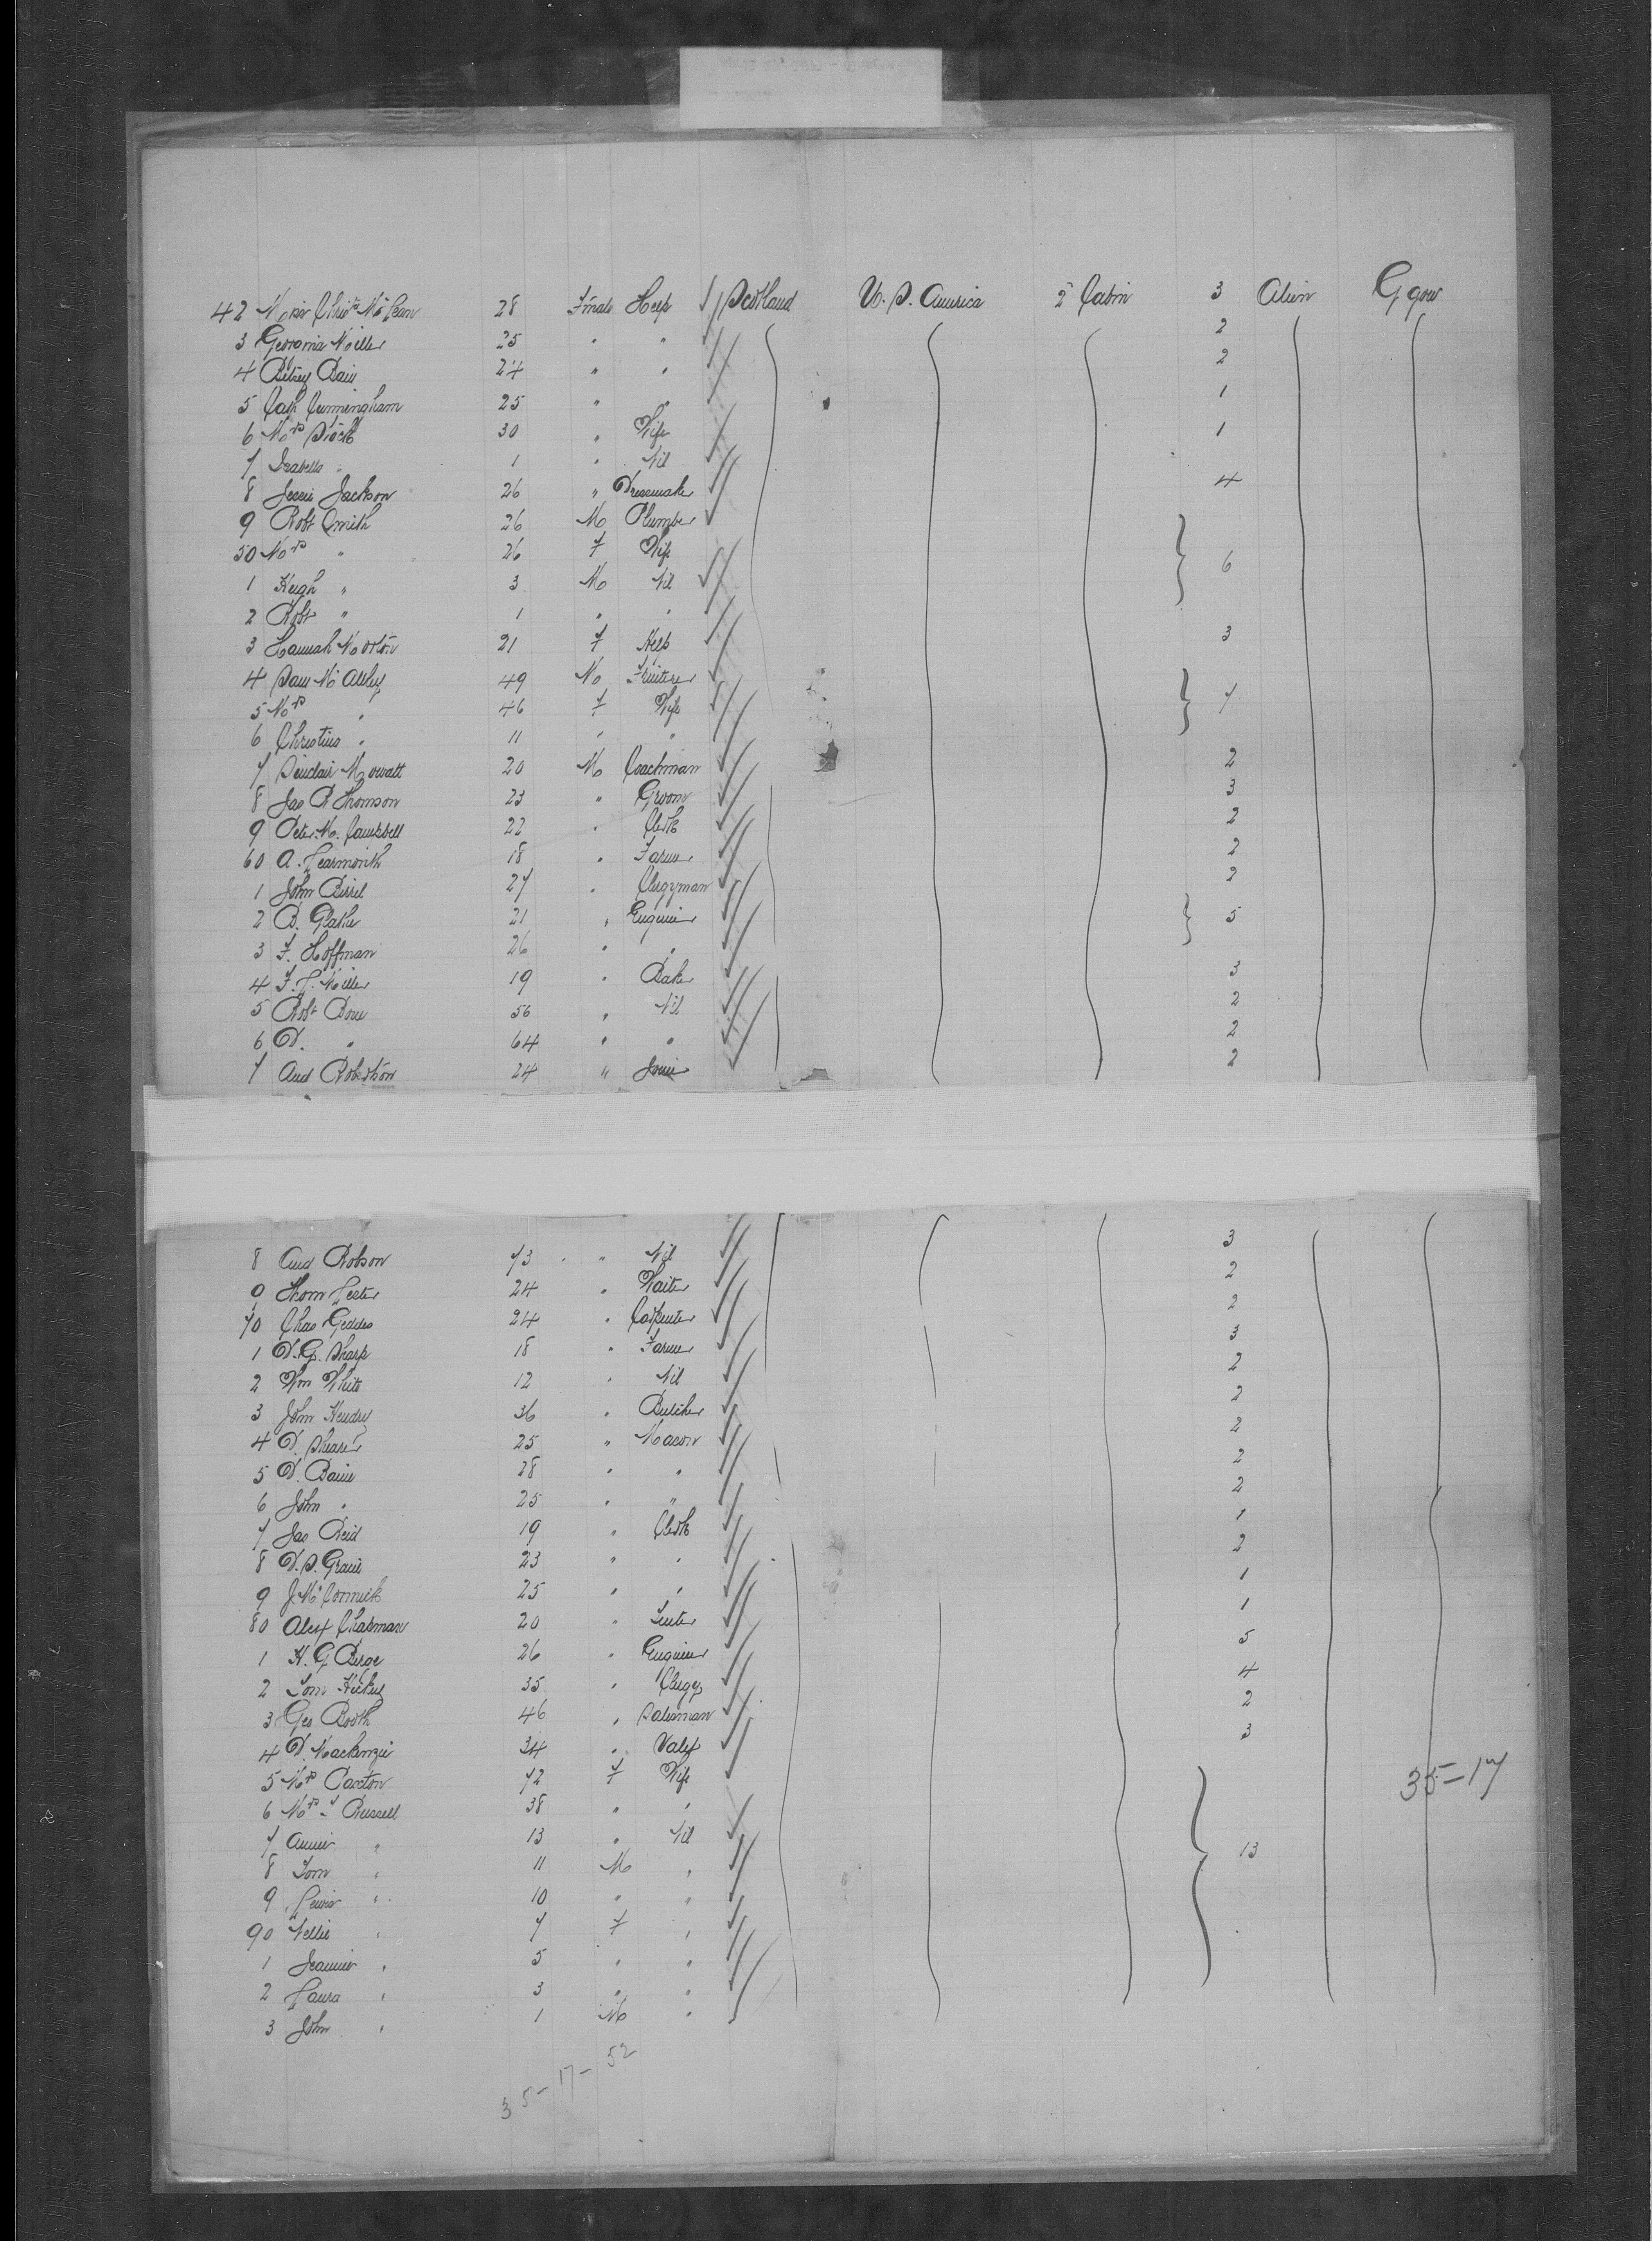 42 Miss Christ. McLean 28 Female Help Scotland U.S. America 2 Cabin 3 Alien Ggow
3 Georgina Miller 25 " " 2
4 Betsey Bain 24 " " 2
5 Cath Cunningham 25 " " 1
6 Mrs Stock 30 " Wife 1
7 Isabella " 1 " Nil
8 Jessie Jackson 26 " Dressmaker 4
9 Robt Smith 26 M Plumber
50 Mrs " 26 F Wife
1 Hugh " 3 M Nil 6
2 Robt " 1 " "
3 Hannah Morton 21 F Help 3
4 Sam McAulay 49 M Fruiterer
5 Mrs " 46 F Wife 7
6 Christina " 11 " "
7 Sinclair Mowatt 20 M Coachman 2
8 Jas R Thomson 23 " Groom 3
9 Peter M. Campbell 22 " Clerk 2
60 A. Learmonth 18 " Farmer 2
1 John Birrel 27 " Clergyman 2
2 21 " Engineer 5
3 F. Hoffman 26 " "
4 F. L. Miller 19 " Baker 3
5 Robt 56 " Nil 2
6 D. " 64 " " 2
7 And Robertson 24 " Joiner 2
8 And Robson 73 " Nil 3
9 Thom Lester 24 " Waiter 2
70 Chas Geddes 24 " Carpenter 2
1 D. G. Sharp 18 " Farmer 3
2 Wm White 12 " Nil 2
3 John Hendry 36 " Butcher 2
4 D. Shearer 25 " Mason 2
5 D. Bain 28 " " 2
6 John " 25 " " 2
7 Jas Reid 19 " Clerk 1
8 D. S. Gracie 23 " " 2
9 J. McCormick 25 " " 1
80 Alex Chapman 20 " 1
1 H. G. 26 " Engineer 5
2 Tom Hickey 35 " Clergy 4
3 Geo Booth 46 " Salesman 2
4 D. Mackenzie 34 " Valet 3
5 Mrs Paxton 72 F Wife 35-17
6 Mrs Russell 38 " "
7 Annie " 13 " Nil
8 Tom " 11 M " 13
9 Lewis " 10 " "
90 Nellie " 7 F "
1 Jeannie " 5 " "
2 Laura " 3 " "
3 John " 1 M "
35-17-52